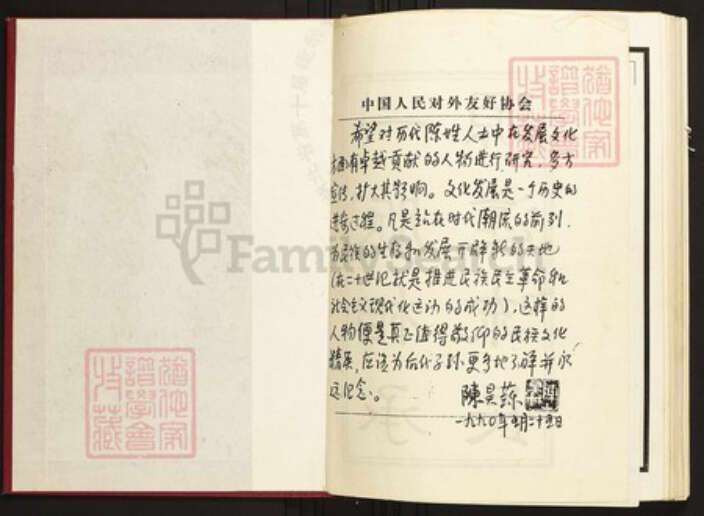 中国人民对外友好协会
希望对历代陈姓人士中在发展文化
方面有卓越贡献的人物进行研究，多方
宣传，扩大其影响。文化发展是一个历史的
进步过程。凡是站在时代潮流的前列，
为民族的生存和发展开辟新的天地
（在二十世纪就是推进民族民主革命和
社会主义现代化运动的成功），这样的
人物便是真正值得敬仰的民族文化
精英，应该为后代子孙更多地了解并永
远纪念。
陳昊蘇
一九九〇年五月二十五日
FamilySearch
譜學會
收藏